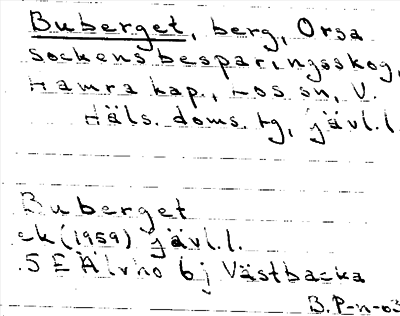 Buberget, berg, Orsa
sockensbesparingsskog,
Hamra kap., Los sn, V.
Häls. doms. tg, Jävl. l.
Buberget
ek (1959) Jävl. l.
.5 E Älvho bj Västbacka
B. P-n-03